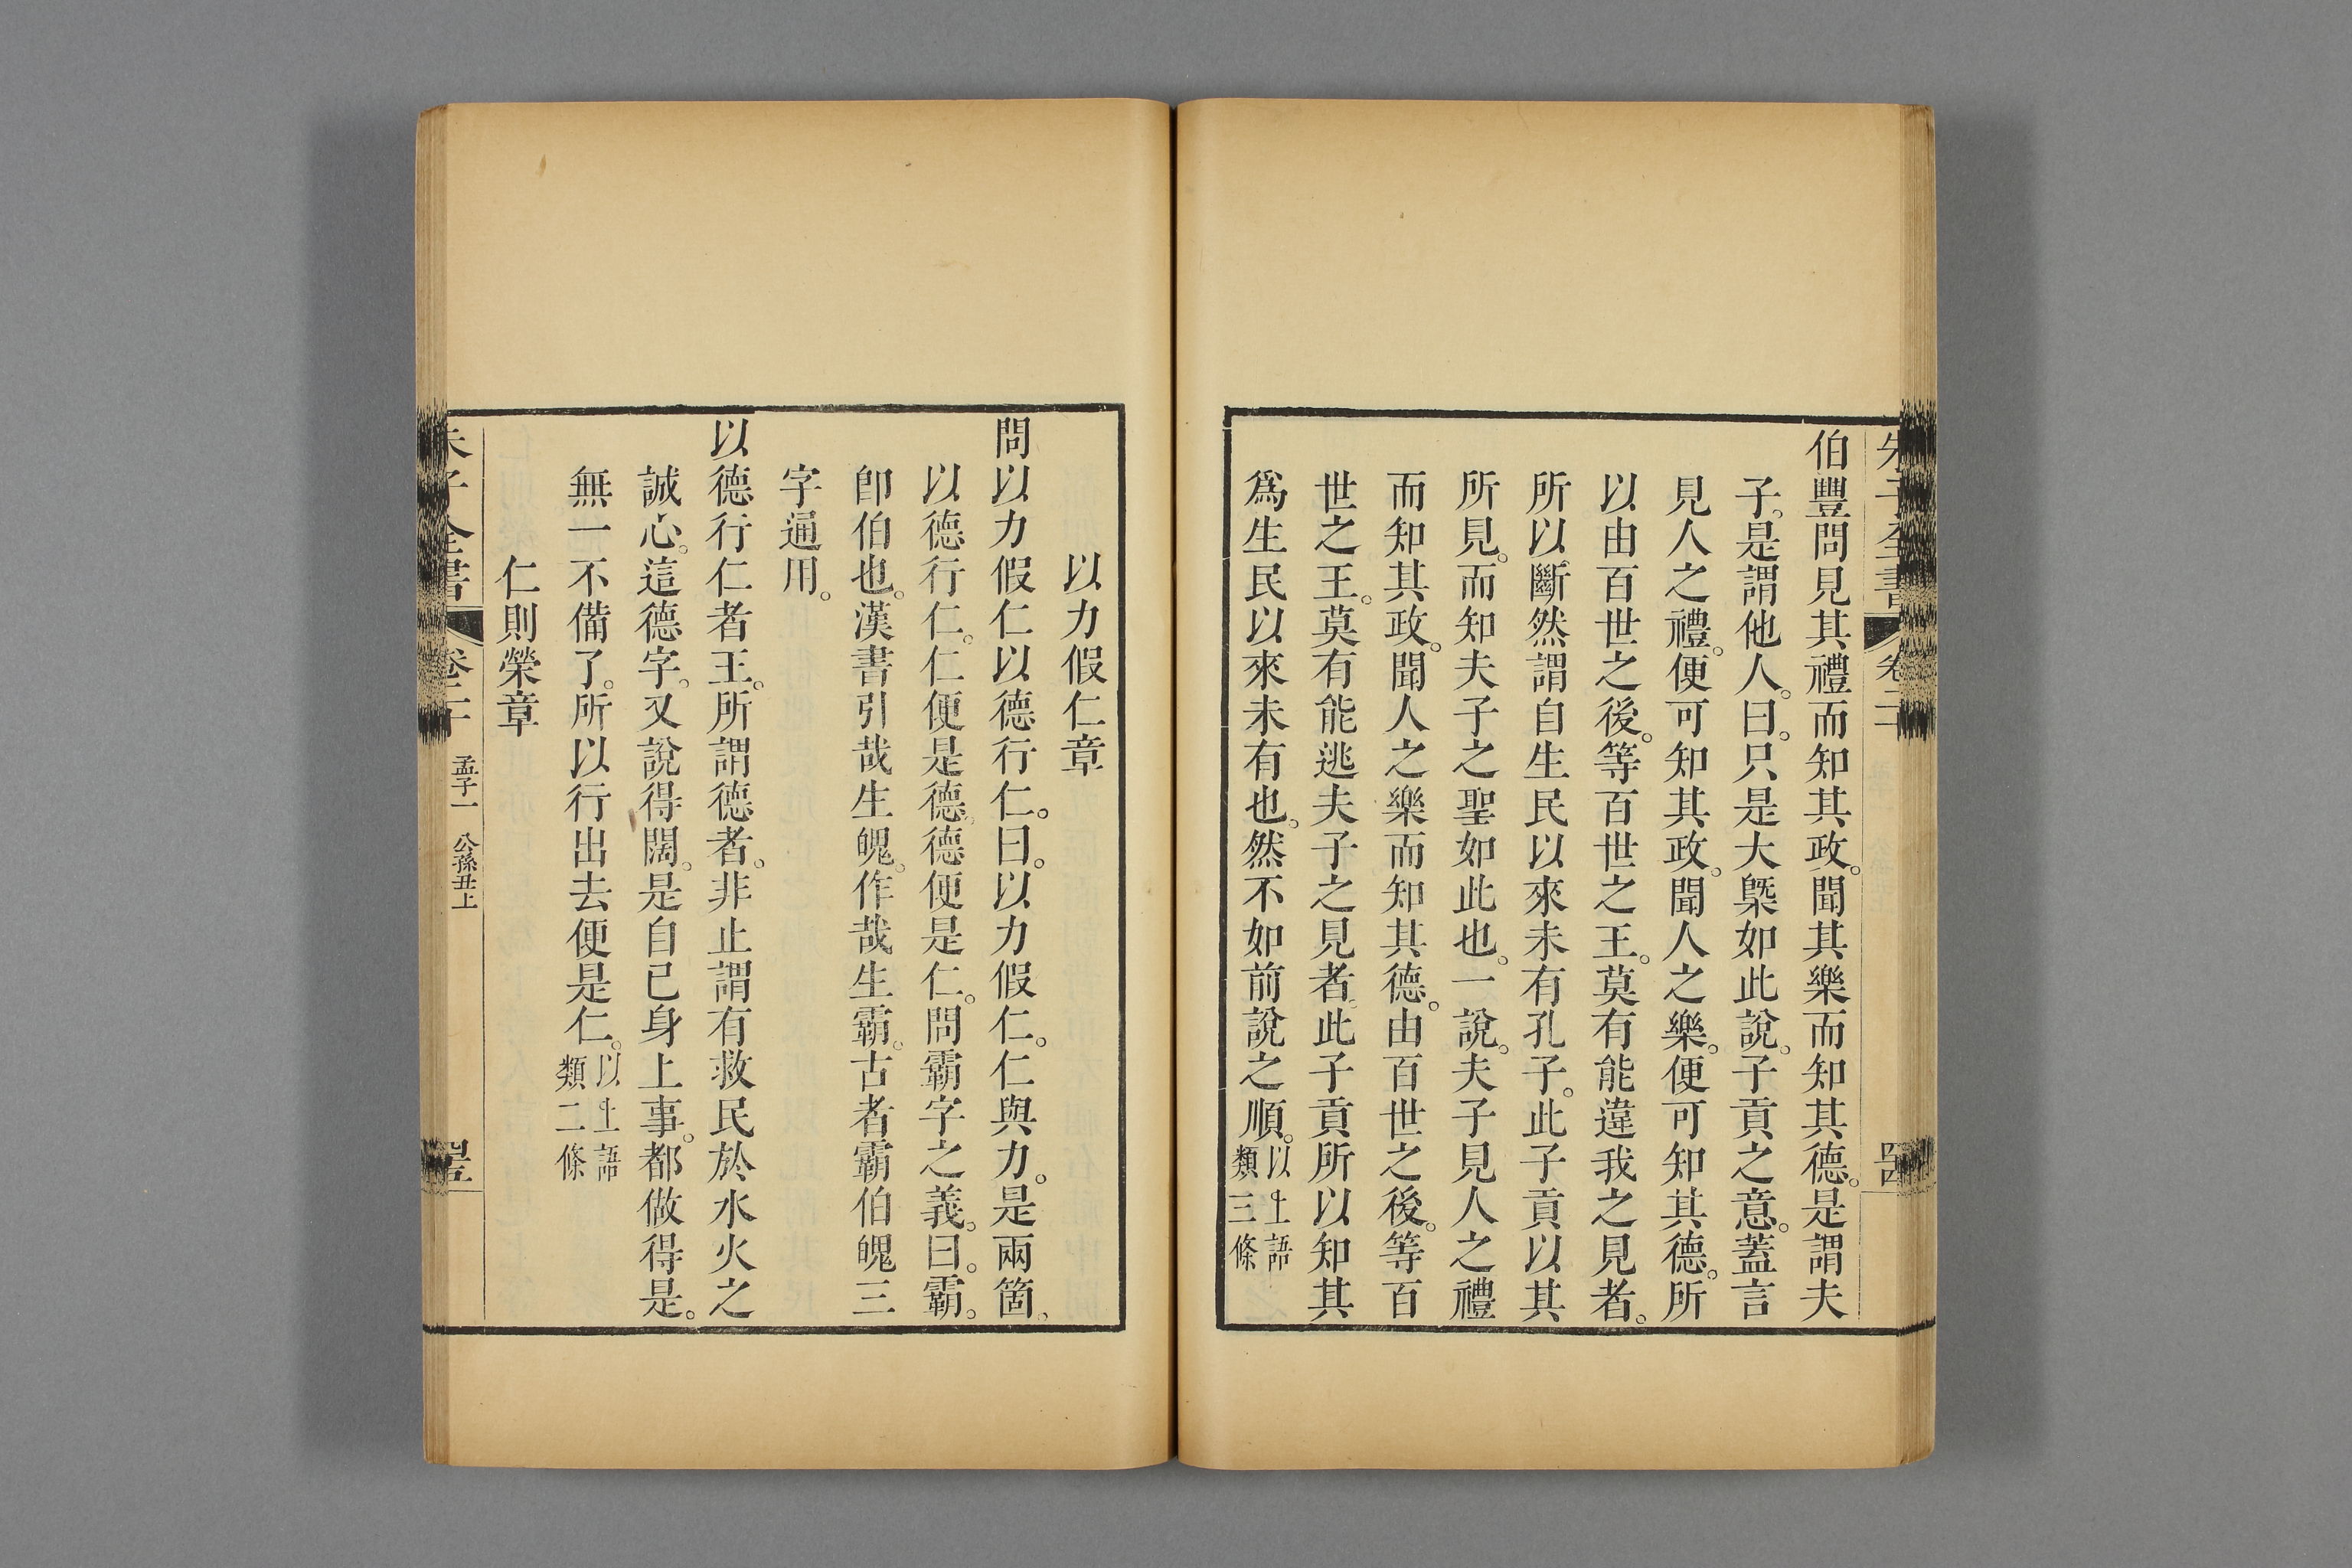 朱子全書 卷二十 四四
伯豐問見其禮而知其政。聞其樂而知其德。是謂夫
子。是謂他人。曰。只是大槩如此說。子貢之意。蓋言
見人之禮。便可知其政。聞人之樂。便可知其德。所
以由百世之後。等百世之王。莫有能違我之見者。
所以斷然謂自生民以來未有孔子。此子貢以其
所見。而知夫子之聖如此也。一說。夫子見人之禮
而知其政。聞人之樂而知其德。由百世之後。等百
世之王。莫有能逃夫子之見者。此子貢所以知其
爲生民以來未有也。然不如前說之順。以上語類三條
以力假仁章
問以力假仁以德行仁。曰。以力假仁。仁與力。是兩箇。
以德行仁。仁便是德。德便是仁。問霸字之義。曰。霸。
卽伯也。漢書引哉生魄。作哉生霸。古者霸伯魄三
字通用。
以德行仁者王。所謂德者。非止謂有救民於水火之
誠心。這德字。又說得闊。是自己身上事。都做得是。
無一不備了。所以行出去便是仁。以上語類二條
仁則榮章
朱子全書 卷二十 孟子一 公孫丑上 四五